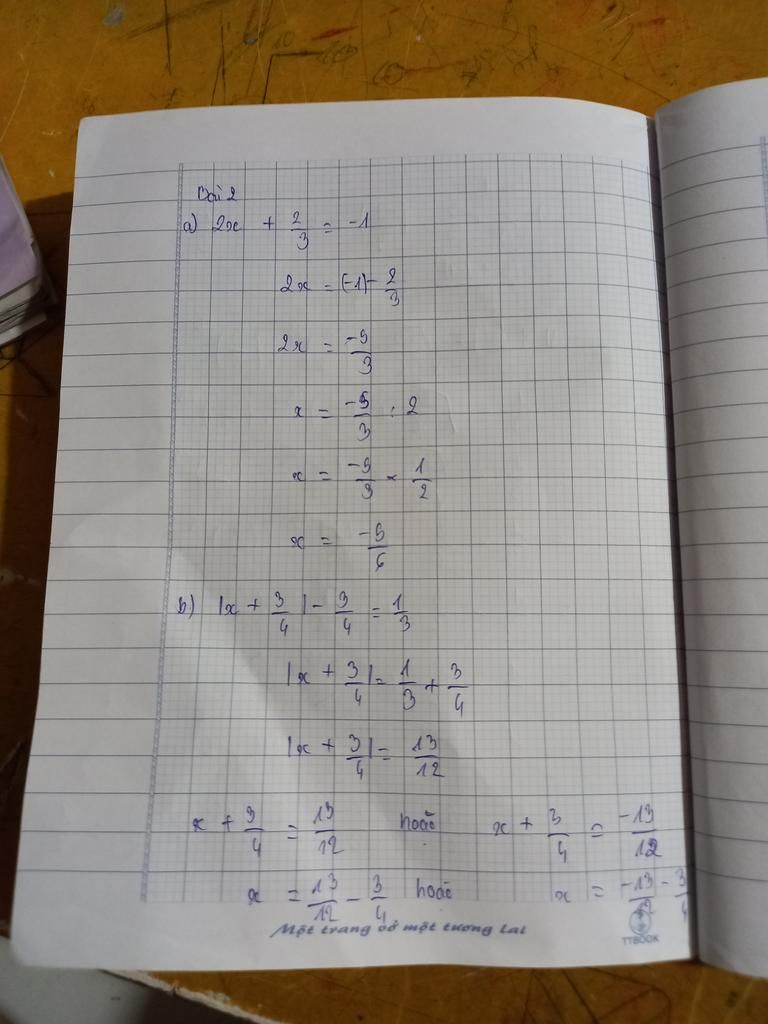 Bài 2
a) 2x + 2/3 = -1
2x = (-1) - 2/3
2x = -5/3
x = -5/3 : 2
x = -5/3 × 1/2
x = -5/6
b) |x + 3/4| - 3/4 = 1/3
|x + 3/4| = 1/3 + 3/4
|x + 3/4| = 13/12
x + 3/4 = 13/12 hoặc x + 3/4 = -13/12
x = 13/12 - 3/4 hoặc x = -13/12 - 3/4
Một trang vở một tương lai
TTBOOK